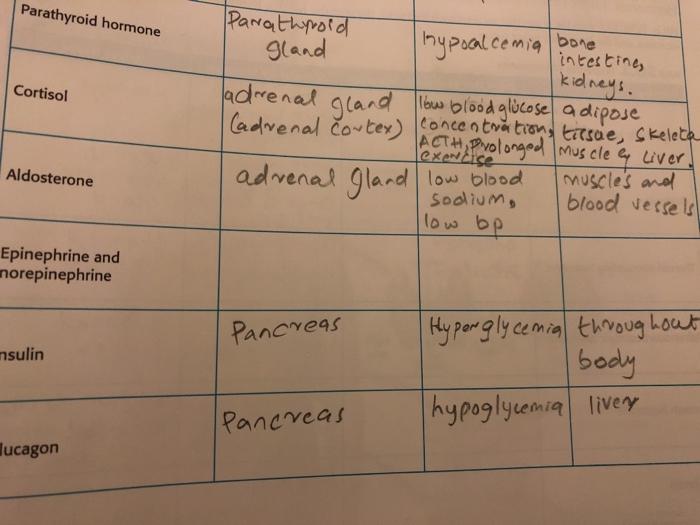 Parathyroid hormone
Parathyroid
gland
hypocalcemia
bone
intestines
kidneys.
Cortisol
adrenal gland
(adrenal cortex)
low blood glucose
concentration,
ACTH, Prolonged
exercise
adipose
tissue, skeleta
muscle & liver.
Aldosterone
adrenal gland
low blood
sodium,
low bp
muscles and
blood vessels
Epinephrine and
norepinephrine
nsulin
Pancreas
Hyperglycemia
throughout
body
lucagon
Pancreas
hypoglycemia
liver